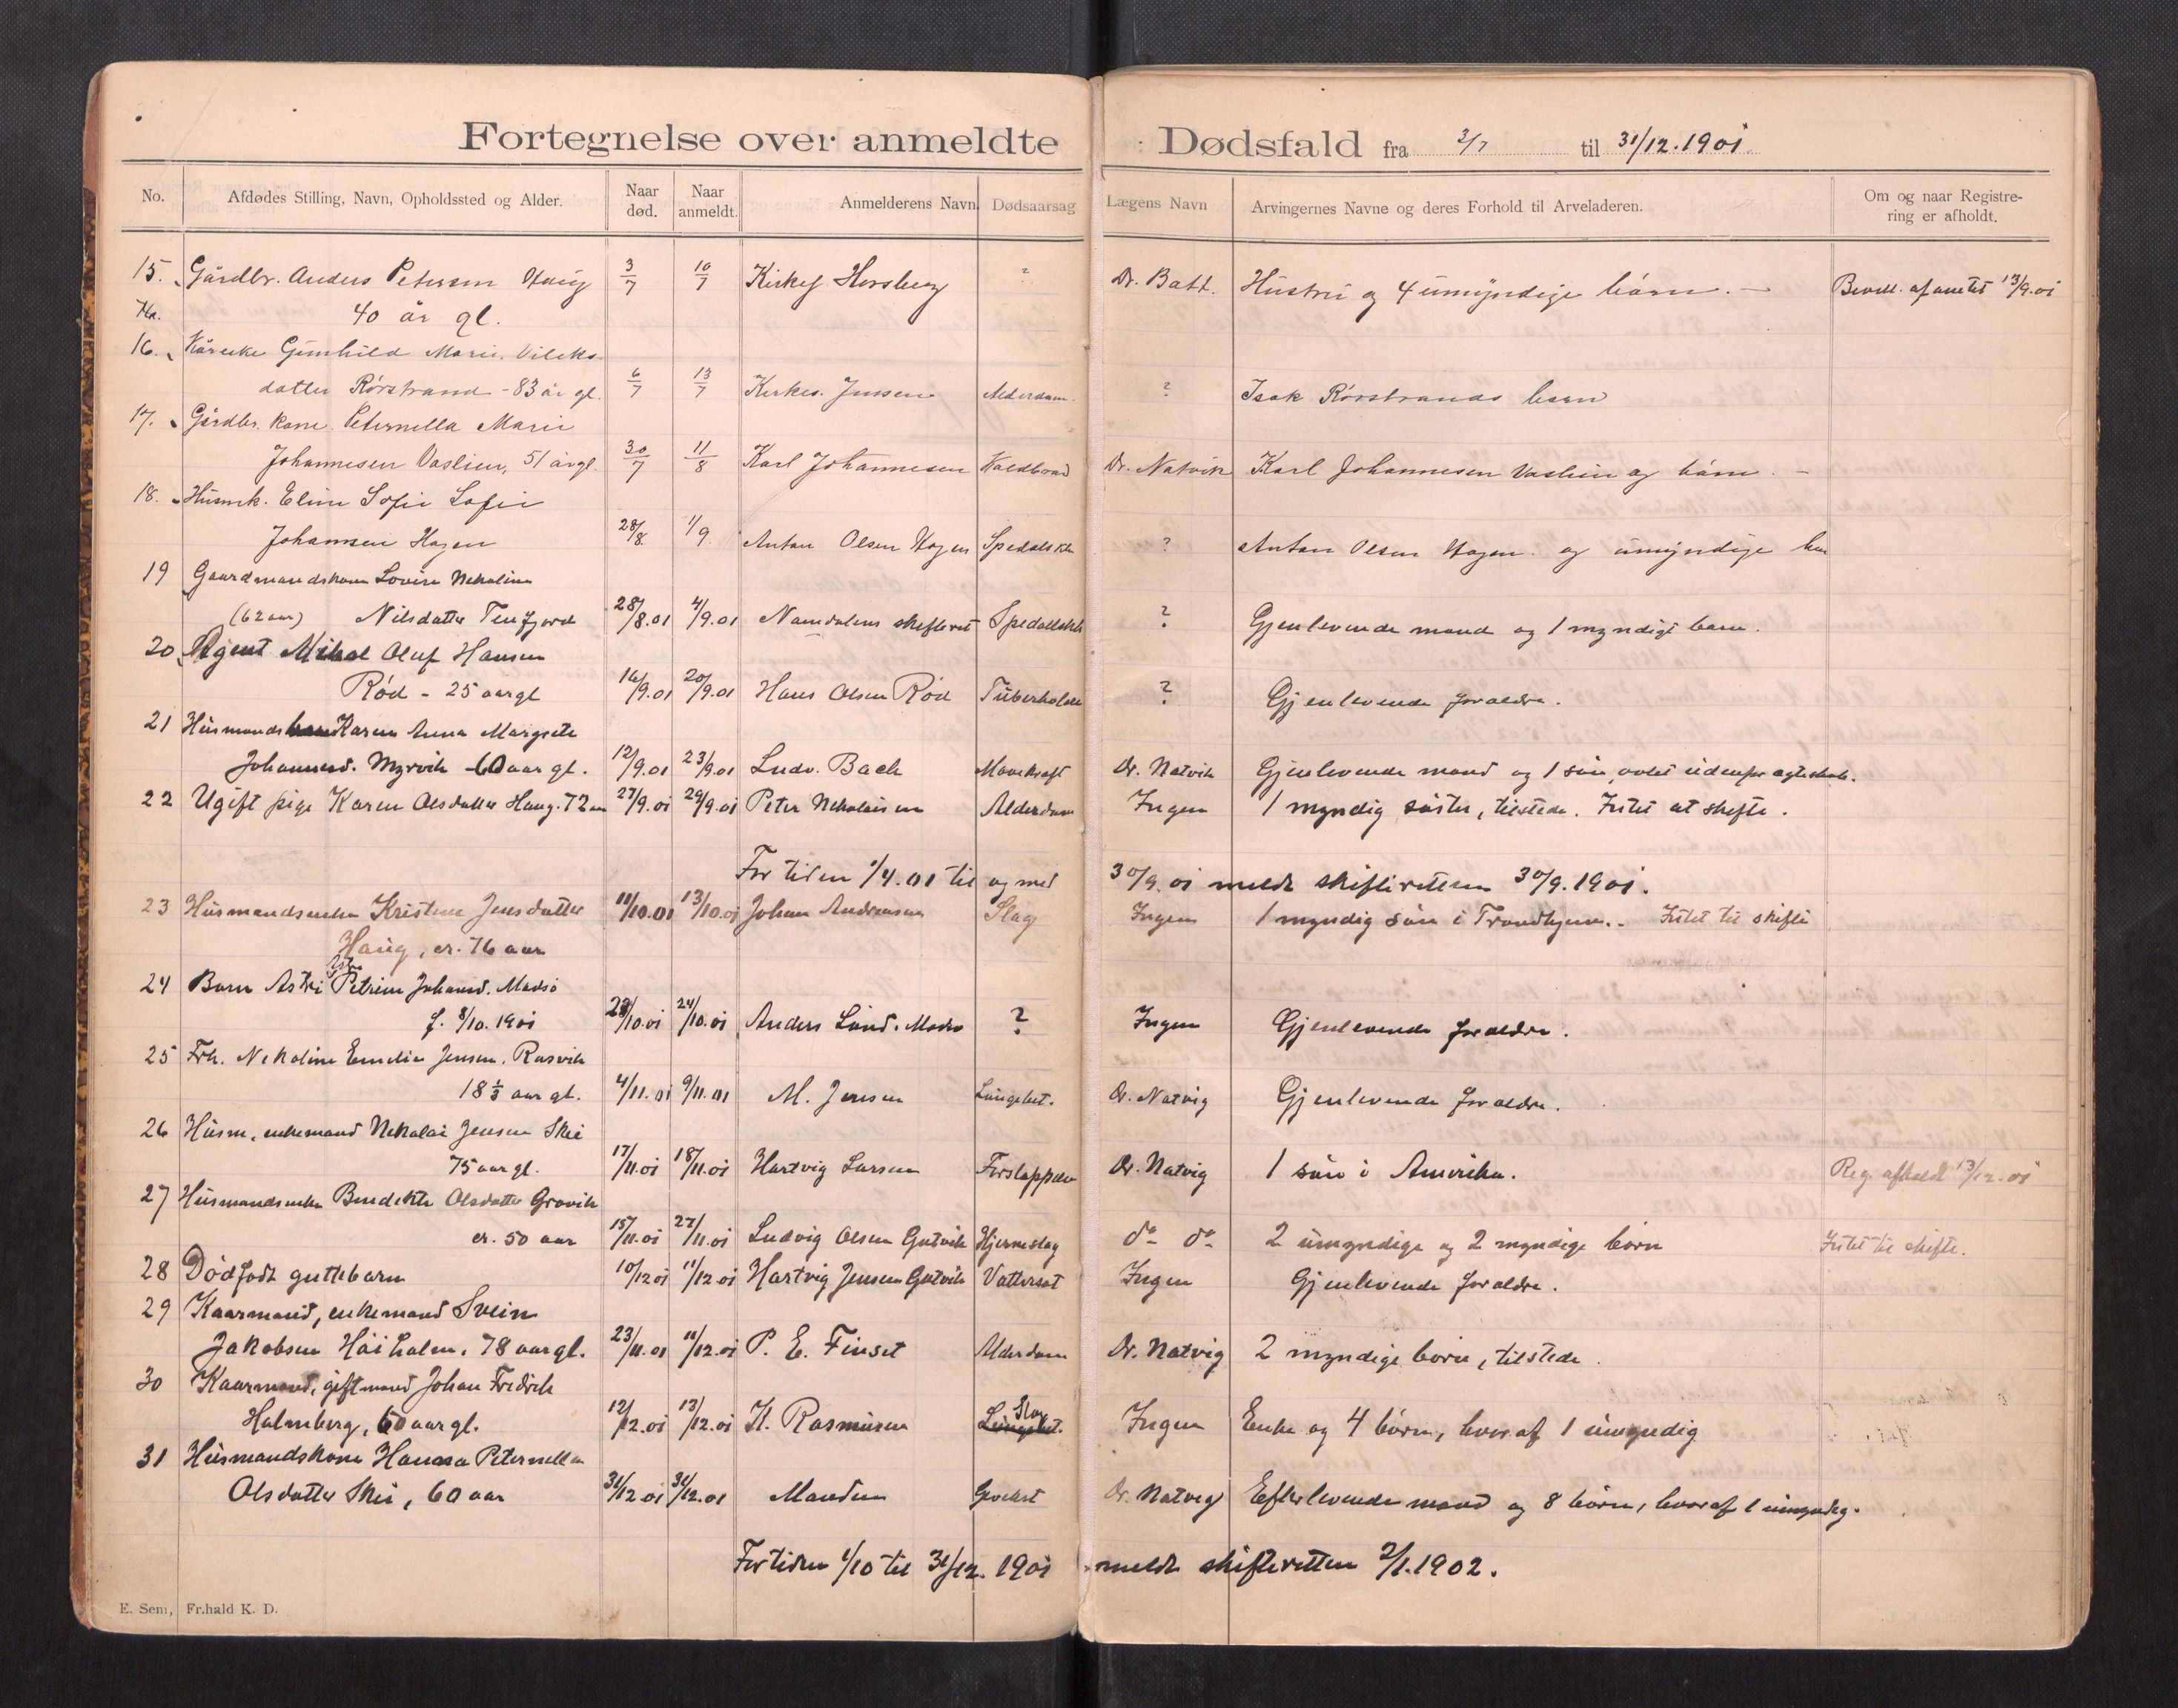 Fortegnelse over anmeldte Dødsfald fra 3/7 til 31/12.1901
No. Afdødes Stilling, Navn, Opholdssted og Alder. Naar død. Naar anmeldt. Anmelderens Navn. Dødsaarsag Lægens Navn Arvingernes Navne og deres Forhold til Arveladeren. Om og naar Registrering er afholdt.
15. Gårdbr. Anders Petersen Haug 3/7 10/7 Kirkes. Horsberg ? Dr. Batt. Hustru og 4 umyndige børn. - Bevill. af amtet 13/9.01
40 år gl.
16. Kårenke Gunhild Marie Vileks
datter Rörstrand - 83 år gl. 6/7 13/7 Kirkes. Jensen Alderdom. ? Isak Rörstrands barn
17. Gårdbr. kone Peternella Marie
Johannesen Vaslien, 51 år gl. 30/7 11/8 Karl Johannesen Koldbrand Dr. Natvik Karl Johannesen Vaslien og børn. -
18. Husmk. Eline Sofie Sofie
Johansen Hagen 28/8. 1/9 Anton Olsen Hagen Spedalskh ? Anton Olsen Hagen og umyndige
19 Gaardmandskone Lovise Nekoline
(62 aar) Nilsdatter Tenfjord 28/8.01 4/9.01 Namdalens skifteret Spedalskh ? Gjenlevende mand og 1 myndigt barn.
20 Agent Mikal Oluf Hansen
Rød - 25 aar gl 16/9.01 20/9.01 Hans Olsen Rød Tuberkolose ? Gjenlevende foraldre.
21 Husmands Karen Anna Margrete
Johannesd. Myrvik - 60 aar gl. 12/9.01 23/9.01 Ludv. Bach Mavekraft Dr. Natvik Gjenlevende mand og 1 søn, avlet udenfor agteskab.
22 Ugift pige Karen Olsdatter Haug. 72 aar 27/9.01 29/9.01 Peter Nekolaisen Alderdom Ingen 1 myndig søster, tilstede. Intet at skifte.
For tiden 1/4.01 til og med 30/9.01 meldt skifteretten 30/9.1901.
23 Husmandsenke Kristine Jensdatter 11/10.01 13/10.01 Johan Andreasen Slag Ingen 1 myndig søn i Trondhjem. - Intet til skifte
Haug, cr. 76 aar
24 Barn Astri Petrine Johansd. Madsø
f. 8/10.1901 /10.01 24/10.01 Anders Lund. Madsø ? Ingen Gjenlevende foraldre.
25 Frk. Nekoline Emelie Jensen, Rasvik
18 1/3 aar gl. 4/11.01 9/11.01 M. Jensen Lungebet. Dr. Natvig Gjenlevende foraldre.
26 Husm. enkemand Nekolai Jensen Skei
75 aar gl. 17/11.01 18/11.01 Hartvig Larsen Forslappelse Dr. Natvig 1 søn i Amerika. Reg. afholdt 13/12.01
27 Husmandsenke Bendikte Olsdatter Grovik
cr. 50 aar 15/11.01 27/11.01 Ludvig Olsen Gutvik Hjerneslag do do 2 umyndige og 2 myndige børn Intet til skifte.
28 Dødfødt guttebarn 10/12 01 11/12.01 Hartvig Jensen Gutvik Vattersot Ingen Gjenlevende foraldre.
29 Kaarmand, enkemand Svein
Jakobsen Høiholm. 78 aar gl. 23/11.01 11/12.01 P. E. Finset Alderdom Dr. Natvig 2 myndige børn, tilstede.
30 Kaarmand, gift mand Johan Fredrik
Holmberg, 60 aar gl. 12/12.01 13/12.01 K. Rasmusen Lungebet. Slag Ingen Enke og 4 børn, hvoraf 1 umyndig
31 Husmandskone Hanna Peternella
Olsdatter Skei, 60 aar 31/12 01 31/12.01 Manden Dr. Natvig Efterlevende mand og 8 børn, hvoraf 1 umyndig.
For tiden 1/10 til 31/12. 1901 meldt skifteretten 2/1.1902.
E. Sem, Fr.hald K. D.